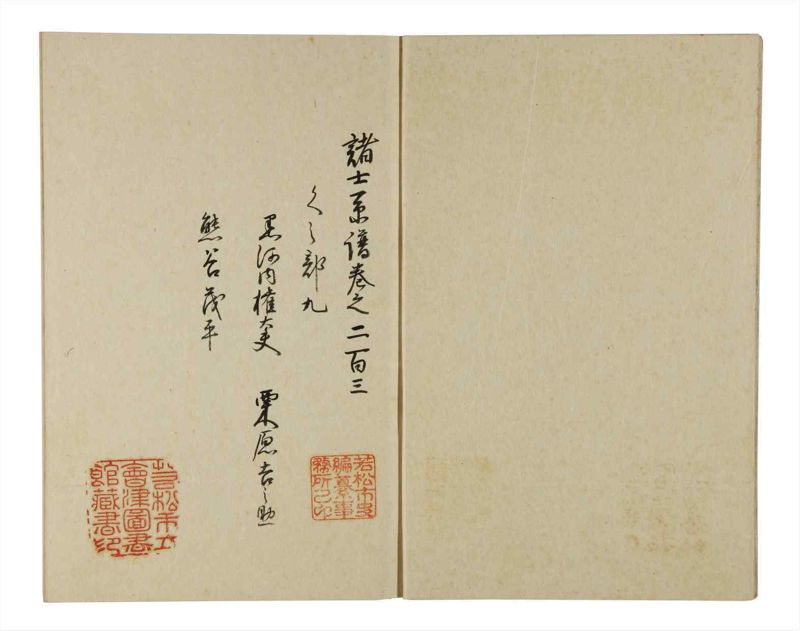 諸士系譜巻之二百三
くら部九
黒河内権大夫　栗原吉之助
熊谷茂平
若松市史
編纂事
務所之印
若松市立
會津圖書
館藏書印